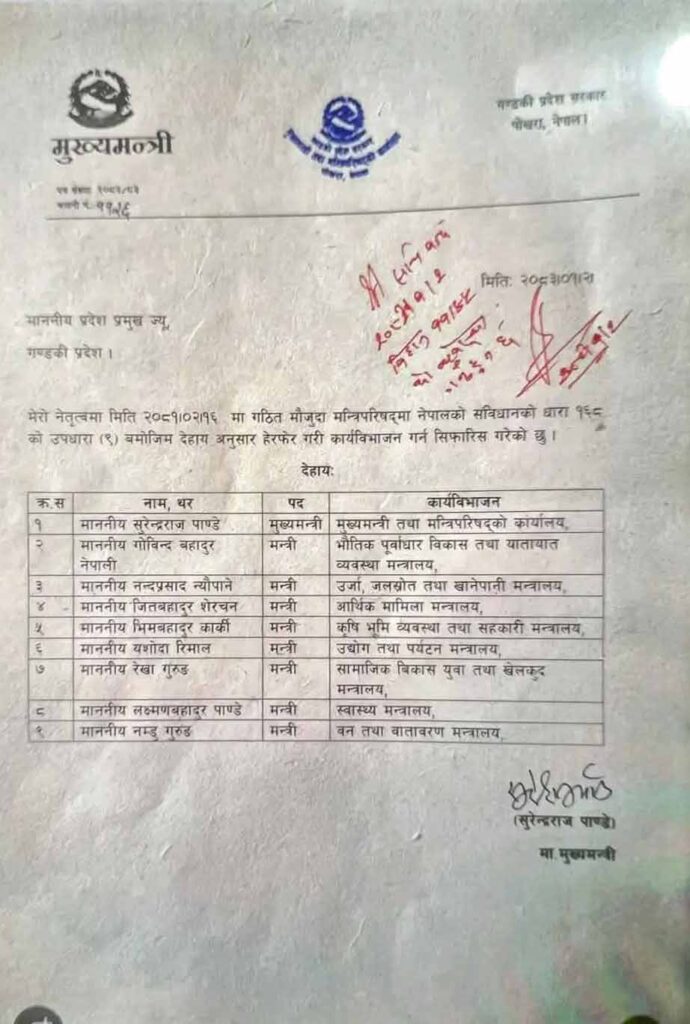 मुख्यमन्त्री
गण्डकी प्रदेश सरकार
पोखरा, नेपाल।
पत्र संख्या २०८२/८३
चलानी नं. ११२६
मिति: २०८३/०१/२
माननीय प्रदेश प्रमुख ज्यू,
गण्डकी प्रदेश ।
मेरो नेतृत्वमा मिति २०८१/०२/१६ मा गठित मौजुदा मन्त्रिपरिषद्मा नेपालको संविधानको धारा १६८
को उपधारा (९) बमोजिम देहाय अनुसार हेरफेर गरी कार्यविभाजन गर्न सिफारिस गरेको छु ।
देहायः
क्र.स नाम, थर पद कार्यविभाजन
१ माननीय सुरेन्द्रराज पाण्डे मुख्यमन्त्री मुख्यमन्त्री तथा मन्त्रिपरिषद्को कार्यालय,
२ माननीय गोविन्द बहादुर मन्त्री भौतिक पूर्वाधार विकास तथा यातायात
नेपाली व्यवस्था मन्त्रालय,
३ माननीय नन्दप्रसाद न्यौपाने मन्त्री उर्जा, जलस्रोत तथा खानेपानी मन्त्रालय,
४ माननीय जितबहादुर शेरचन मन्त्री आर्थिक मामिला मन्त्रालय,
५ माननीय भिमबहादुर कार्की मन्त्री कृषि भूमि व्यवस्था तथा सहकारी मन्त्रालय,
६ माननीय यशोदा रिमाल मन्त्री उद्योग तथा पर्यटन मन्त्रालय,
७ माननीय रेखा गुरुङ मन्त्री सामाजिक बिकास युवा तथा खेलकुद
मन्त्रालय,
८ माननीय लक्ष्मणबहादुर पाण्डे मन्त्री स्वास्थ्य मन्त्रालय,
९ माननीय नम्डु गुरुङ मन्त्री वन तथा वातावरण मन्त्रालय,
(सुरेन्द्रराज पाण्डे)
मा.मुख्यमन्त्री